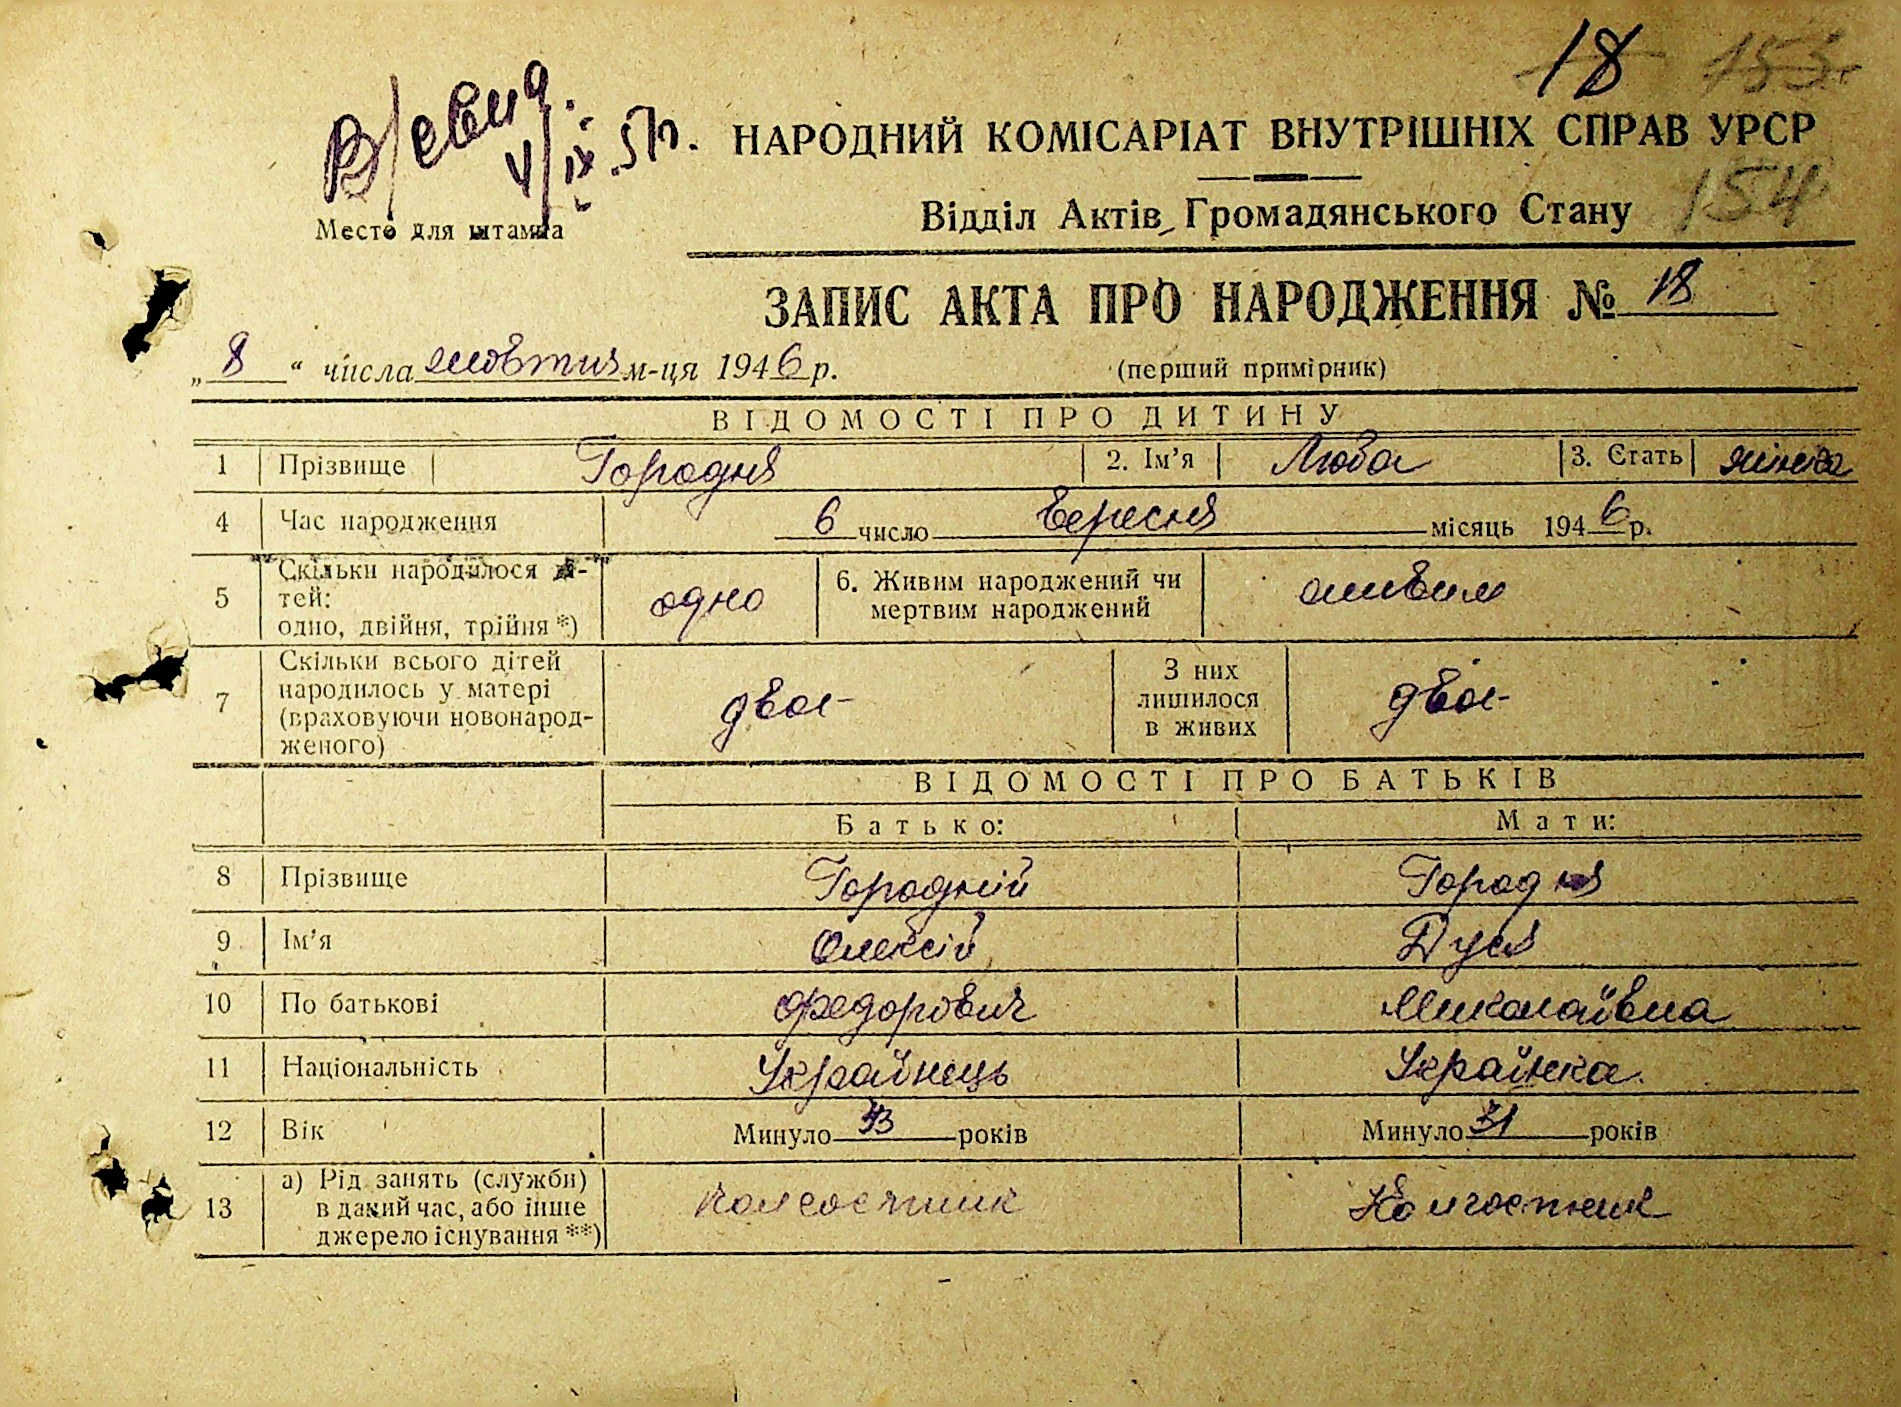 18 153
НАРОДНИЙ КОМІСАРІАТ ВНУТРІШНІХ СПРАВ УРСР
Відділ Актів Громадянського Стану 154
Место для штампа
ЗАПИС АКТА ПРО НАРОДЖЕННЯ № 18
„8“ числа жовтня м-ця 1946 р. (перший примірник)
ВІДОМОСТІ ПРО ДИТИНУ
1 Прізвище Городня 2. Ім’я Люба 3. Стать жіноча
4 Час народження 6 число вересня місяць 1946 р.
5 Скільки народилося ді-
тей:
одно, двійня, трійня *) одно 6. Живим народжений чи
мертвим народжений живим
7 Скільки всього дітей
народилось у матері
(враховуючи новонарод-
женого) двоє
З них
лишилося
в живих двоє
ВІДОМОСТІ ПРО БАТЬКІВ
Батько: Мати:
8 Прізвище Городній Городня
9 Ім’я Олексій Дуся
10 По батькові Федорович Миколаївна
11 Національність Українець Українка
12 Вік Минуло 33 років Минуло 31 років
13 а) Рід занять (служби)
в даний час, або інше
джерело існування **) колгоспник Колгоспник